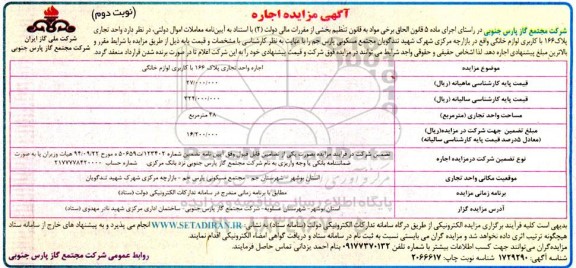 آگهی مزایده اجاره
(نوبت دوم)
شرکت ملی گاز ایران
شرکت مجتمع گاز پارس جنوبی
شرکت مجتمع گاز پارس جنوبی در راستای اجرای ماده ۵ قانون الحاق برخی مواد به قانون تنظیم بخشی از مقررات مالی دولت (۲) با استناد به آیین‌نامه معاملات اموال دولتی، در نظر دارد واحد تجاری
پلاک ۱۶۶ با کاربری لوازم خانگی واقع در بازارچه مرکزی شهرک شهید تندگویان مجتمع مسکونی پارس جم را با عنایت به نظر کارشناسی با مشخصات و قیمت پایه ذیل از طریق مزایده با شرایط مقرر و
بالاترین مبلغ پیشنهادی اجاره دهد. لذا اشخاص حقیقی و حقوقی واجد شرایط می توانند در مزایده فوق شرکت و قیمت پیشنهادی خود را به این شرکت اعلام تا در صورت برنده شدن قرارداد منعقد گردد.
موضوع مزایده
اجاره واحد تجاری پلاک ۱۶۶ با کاربری لوازم خانگی
قیمت پایه کارشناسی ماهیانه (ریال)
۲۷/۰۰۰/۰۰۰
قیمت پایه کارشناسی سالیانه (ریال)
۳۲۴/۰۰۰/۰۰۰
مساحت واحد تجاری (مترمربع)
۴۸ مترمربع
مبلغ تضمین جهت شرکت در مزایده(ریال)
(معادل ۵درصد قیمت پایه کارشناسی سالیانه)
۱۶/۲۰۰/۰۰۰
نوع تضمین شرکت درمزایده اجاره
تضمین شرکت در فرآیند مزایده بصورت یکی از تضامین قابل قبول وفق آیین نامه تضمین شماره ۱۲۳۴۰۲/ت۵۰۶۵۹ه مورخ ۹۴/۰۹/۲۲ هیات وزیران یا به صورت
ضمانتنامه بانکی یا وجه واریزی به نام شرکت مجتمع گاز پارس جنوبی نزد بانک مرکزی شماره حساب
موقعیت مکانی واحد تجاری
استان بوشهر - شهرستان جم - مجتمع مسکونی پارس جم - بازارچه مرکزی شهرک شهید تندگویان
برنامه زمانی مزایده
مطابق با برنامه زمانی مندرج در سامانه تدارکات الکترونیکی دولت (ستاد)
آدرس مزایده گزار
استان بوشهر - شهرستان عسلویه - شرکت مجتمع گاز پارس جنوبی - ساختمان اداری مرکزی شهید نادر مهدوی (ستاد)
بدیهی است کلیه فرآیند برگزاری مزایده الکترونیکی از طریق درگاه سامانه تدارکات الکترونیکی دولت (سامانه ستاد) به آدرس WWW.SETADIRAN.IR انجام می پذیرد و به پیشنهاد های خارج از سامانه ستاد
هیچگونه ترتیب اثری داده نخواهد شد و مزایده گران می بایستی نسبت به ثبت نام در سامانه ستاد و دریافت گواهی امضاء الکترونیکی اقدام نمایند.
مزایده‌گران می‌توانند جهت کسب اطلاعات بیشتر با شماره تلفن ۰۹۱۷۷۳۷۰۱۳۲ بنام احمد یزدانی تماس حاصل فرمایند.
شناسه آگهی: ۱۷۲۹۲۹۰ شناسه نوبت چاپ: ۲۰۶۶۶۱۷
روابط عمومی شرکت مجتمع گاز پارس جنوبی